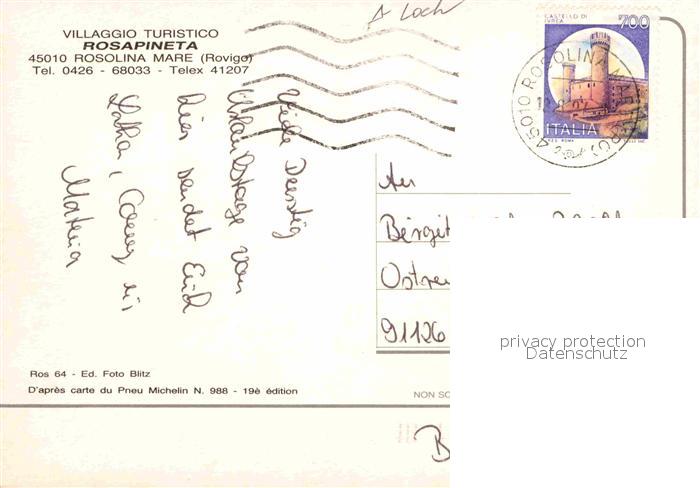 A Loch
VILLAGGIO TURISTICO
ROSAPINETA
45010 ROSOLINA MARE (Rovigo)
Tel. 0426 - 68033 - Telex 41207
CASTELLO DI
IVREA
700
ITALIA
45010 ROSOLINA MARE (RO)
Viele
Urlaubstage von
hier sendet Euch
An
Birgit
91126
privacy protection
Datenschutz
Ros 64 - Ed. Foto Blitz
D'après carte du Pneu Michelin N. 988 - 19è édition
NON SC
B